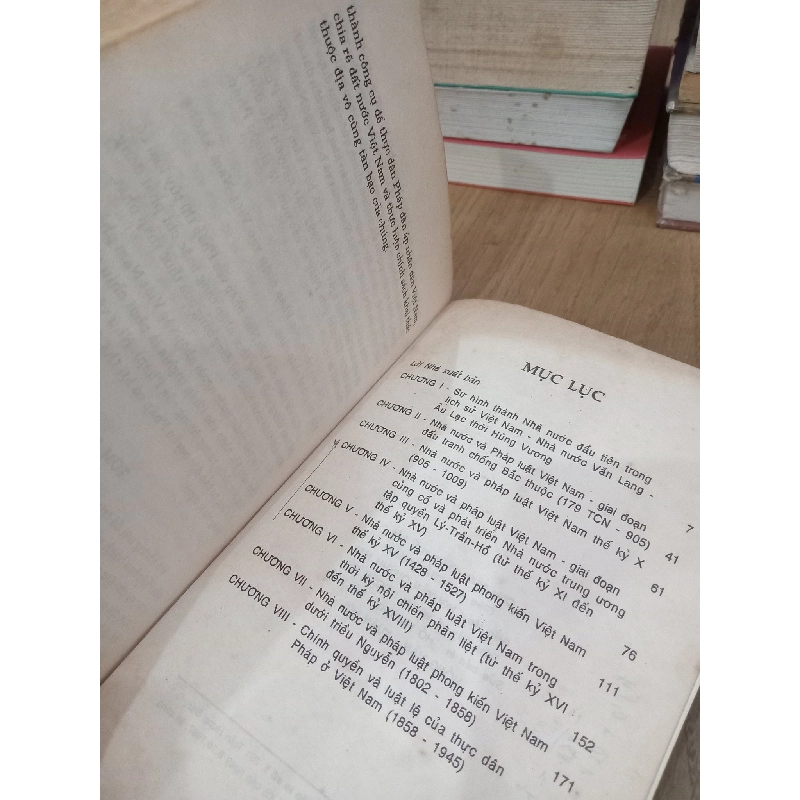 thành công cụ để thực dân Pháp đàn áp nhân dân Việt Nam,
chia rẽ đất nước Việt Nam và thực hiện chính sách
thuộc địa vô cùng tàn bạo của chúng.
MỤC LỤC
Lời Nhà xuất bản
CHƯƠNG I - Sự hình thành Nhà nước đầu tiên trong
lịch sử Việt Nam - Nhà nước Văn Lang -
Âu Lạc thời Hùng Vương 7
CHƯƠNG II - Nhà nước và Pháp luật Việt Nam - giai đoạn
đấu tranh chống Bắc thuộc (179 TCN - 905) 41
CHƯƠNG III - Nhà nước và pháp luật Việt Nam thế kỷ X
(906 - 1009) 61
CHƯƠNG IV - Nhà nước và pháp luật Việt Nam - giai đoạn
củng cố và phát triển Nhà nước trung ương
tập quyền Lý-Trần-Hồ (từ thế kỷ XI đến
thế kỷ XV) 76
CHƯƠNG V - Nhà nước và pháp luật phong kiến Việt Nam
thế kỷ XV (1428 - 1527) 111
CHƯƠNG VI - Nhà nước và pháp luật Việt Nam trong
thời kỳ nội chiến phân liệt (từ thế kỷ XVI
đến thế kỷ XVIII) 152
CHƯƠNG VII - Nhà nước và pháp luật phong kiến Việt Nam
dưới triều Nguyễn (1802 - 1858) 171
CHƯƠNG VIII - Chính quyền và luật lệ của thực dân
Pháp ở Việt Nam (1858 - 1945)